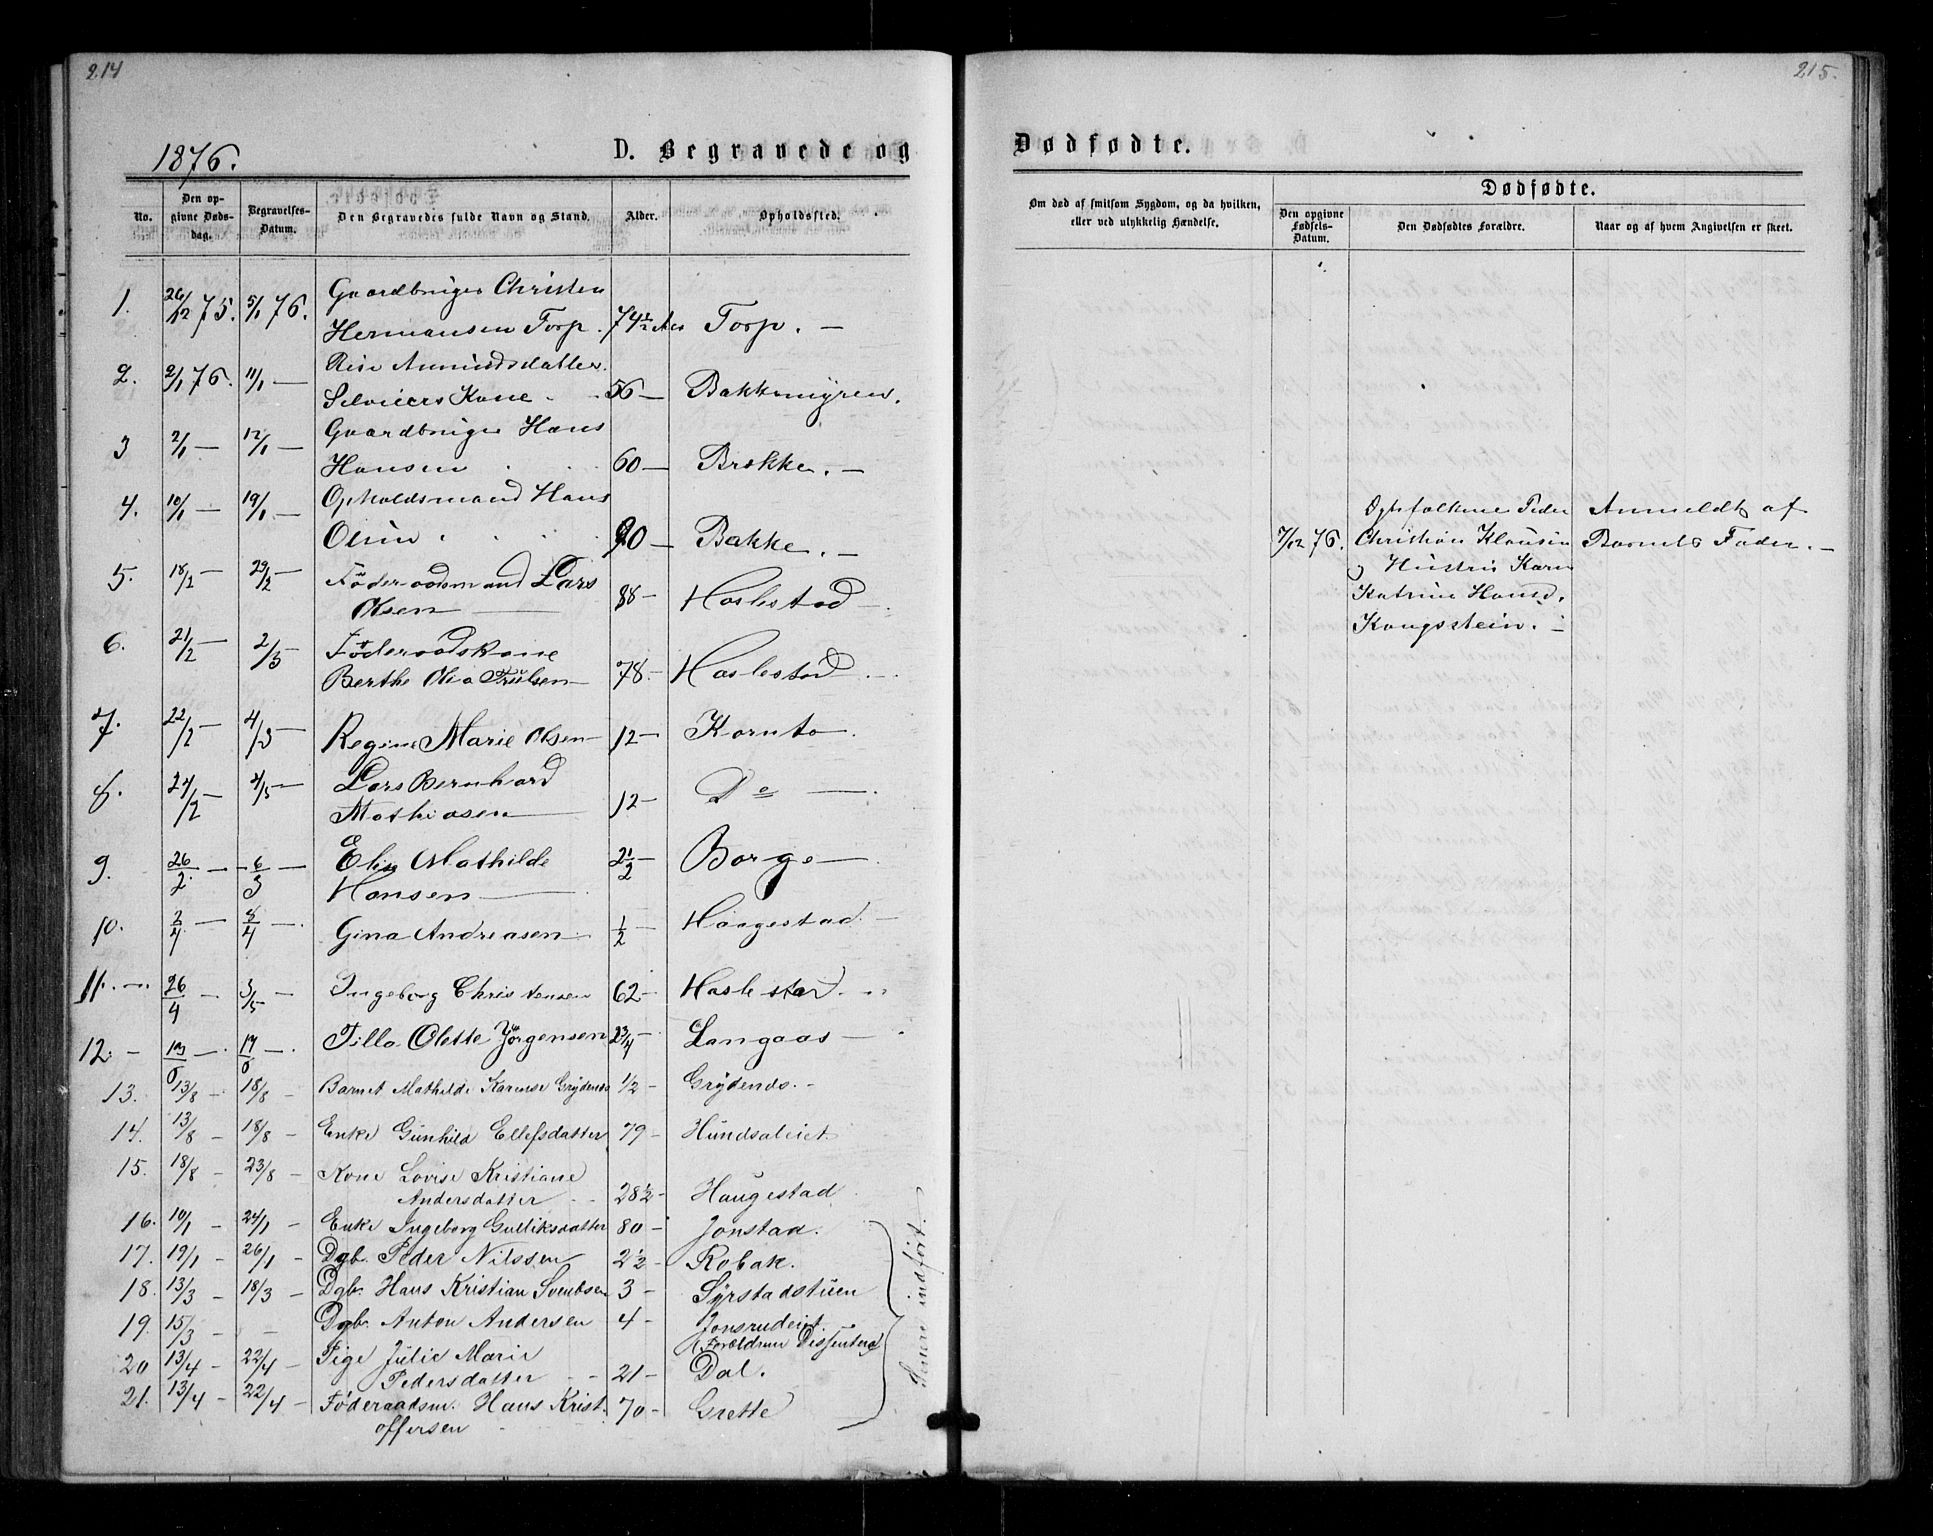 214
1876.
D. Begravede og
No.
Den opgivne Dødsdag.
Begravelses-Datum.
Den Begravedes fulde Navn og Stand.
Alder.
Opholdssted.
1. 26/12 75. 5/1 76. Gaardbruger Christen
Hermansen Torp. 74½ Aar Torp. —
2. 2/1 76. 11/1 — Amundsdatter.
Kone 56 — Bakkemyren.
3 2/1 — 12/1 — Gaardbruger Hans
Hansen 60 — Brekke. —
4. 10/1 — 19/1 — Opholdsmand Hans
Olsen 90 — Bakke. —
5. 18/2 — 29/2 — Föderaadsmand Lars
Olsen — 88 — Haslestad —
6. 21/2 — 2/3 — Föderaadskone
Berthe Olia Trulsen — 78 — Haslestad —
7. 22/2 — 4/3 — Regine Marie Olsen — 12 — Kornto
8. 24/2 — 4/3 — Lars Bernhard
Mathiasen — 12 — Do —
9. 26/2 — 6/3 — Elise Mathilde
Hansen — 2½ — Borge —
10. 2/4 — 8/4 — Gina Andreasen ½ — Haagestad —
11. — 26/4 — 3/5 — Ingeborg Christensen 62 — Haslestad —
12. — 13/6 — 17/6 — Tilla Olette Jørgensen 2¾ — Langaas —
13. 13/8 — 18/8 — Barnet Mathilde Karense Grydends ½ — Grydends. —
14. 13/8 — 18/8 — Enke Gunhild Ellefsdatter 79 — Hundsaleiet
15. 18/8 — 23/8 — Kone Lovise Kristiane
Andersdatter 28½ — Haugestad
16. 10/1 — 24/1 — Enke Ingeborg Gulliksdatter 80 — Jonstad.
17. 19/1 — 26/1 — Dgb. Peder Nilssen 2½ — Robak.
18. 13/3 — 18/3 — Dgb. Hans Kristian 3 — Syrstadstuen
19. 15/3 — — Dgb. Anton Andersen 4 — Jonsrudeiet
(Forældrene Dissentere)
20 13/4 — 22/4 — Pige Julie Marie
Pedersdatter 21 — Dal.
21. 13/4 — 22/4 — Föderaadsm. Hans Krist-
offersen 70 — Grette
Senere indført.
215.
Dødfødte.
Om død af smitsom Sygdom, og da hvilken,
eller ved ulykkelig Hændelse.
Dødfødte.
Den opgivne
Fødsels-
Datum.
Den Dødfødtes Forældre.
Naar og af hvem Angivelsen er skeet.
7/12 76.
Peder
Christian Klausen
og Hustru Karen
Katrine Hansd.
Kongsstein. —
Anmeldt af
Barnets Fader. —